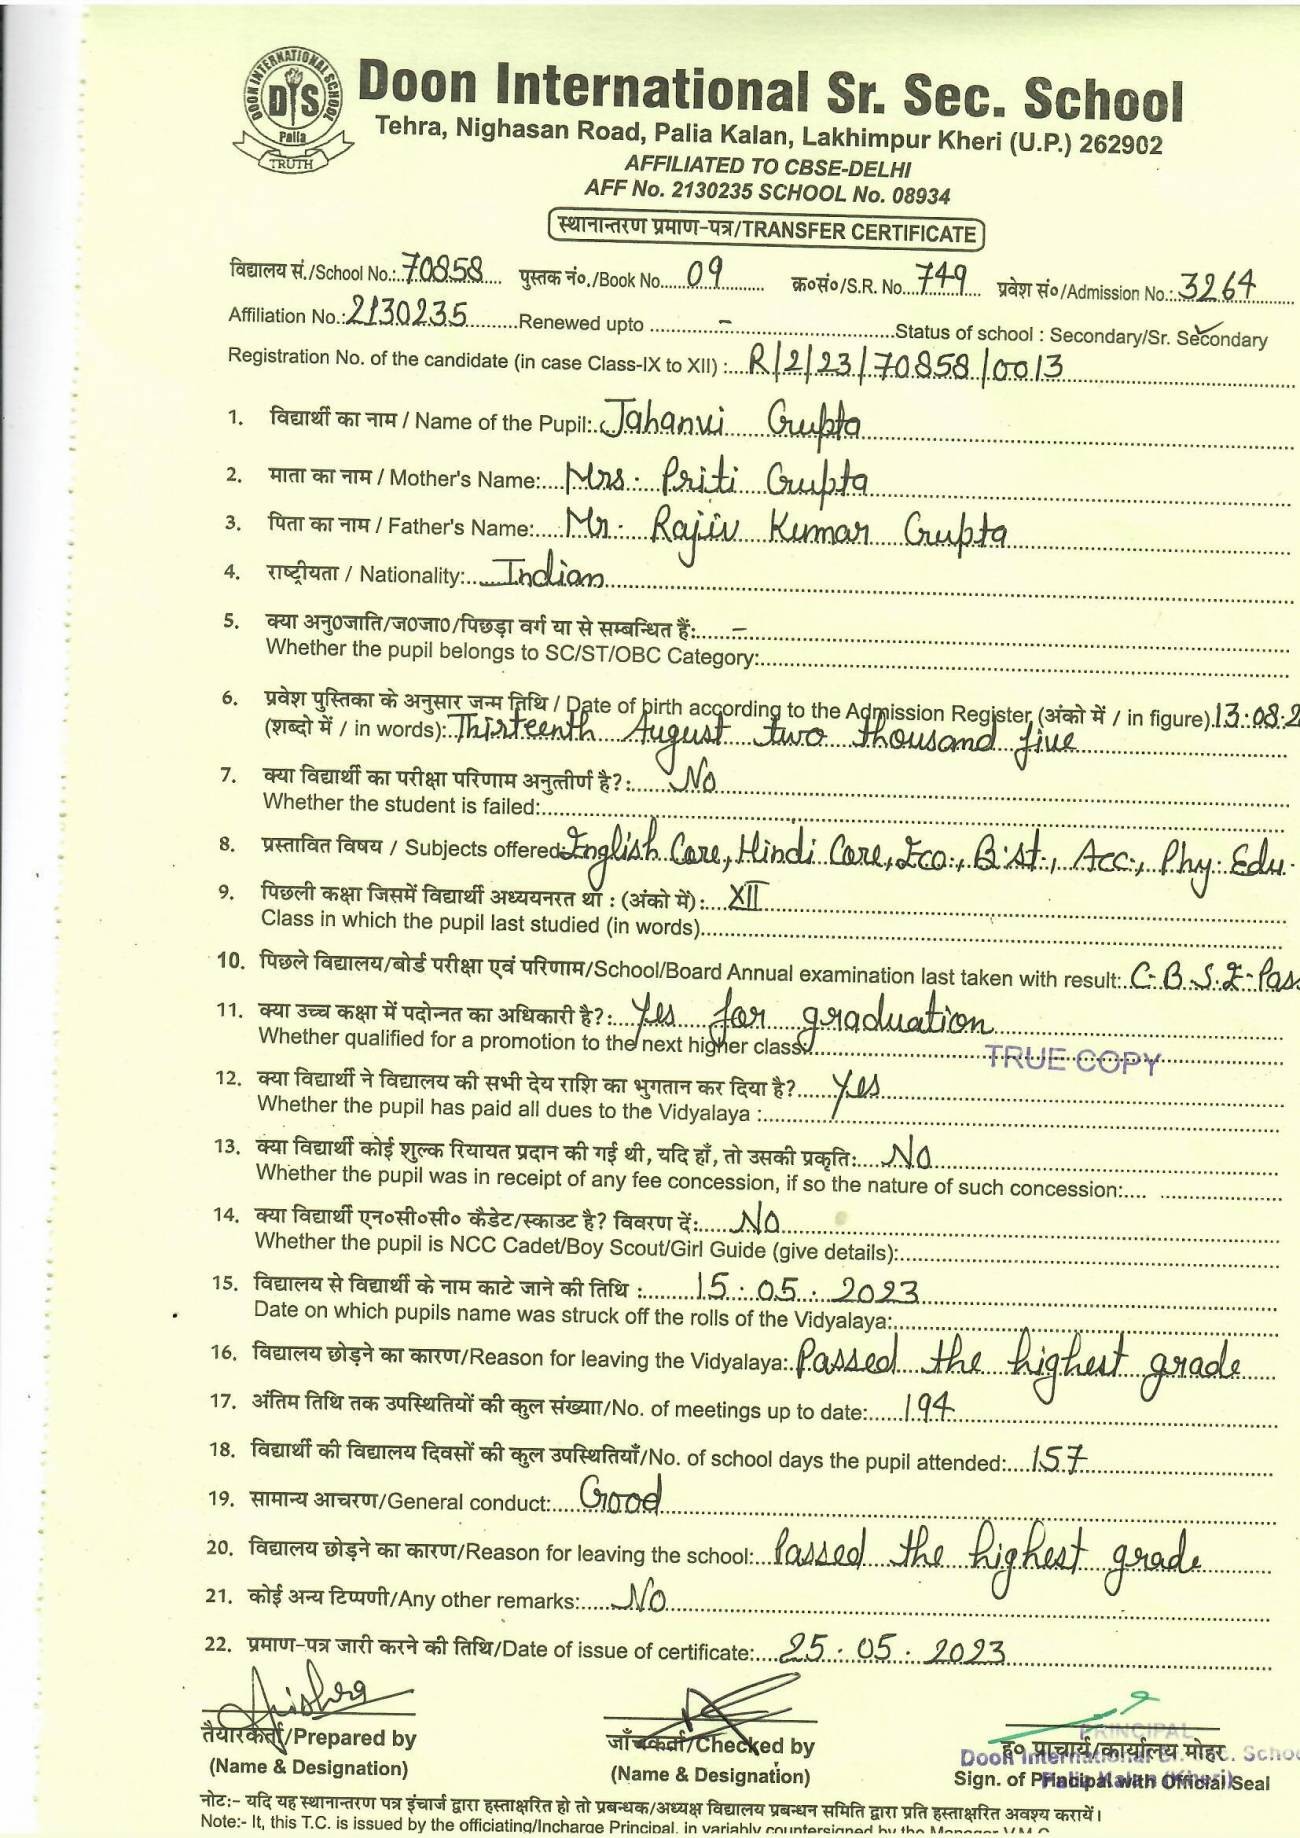 DOON INTERNATIONAL SCHOOL
DIS
Palia
TRUTH
Doon International Sr. Sec. School
Tehra, Nighasan Road, Palia Kalan, Lakhimpur Kheri (U.P.) 262902
AFFILIATED TO CBSE-DELHI
AFF No. 2130235 SCHOOL No. 08934
स्थानान्तरण प्रमाण-पत्र/TRANSFER CERTIFICATE
विद्यालय सं./School No.:..70858..... पुस्तक नं०./Book No.....09............ क्र०सं०/S.R. No....749.... प्रवेश सं०/Admission No.:..3264
Affiliation No.:2130235..........Renewed upto ..........-..........Status of school : Secondary/Sr. Secondary
Registration No. of the candidate (in case Class-IX to XII) :...R/2/23/70858/0013
1. विद्यार्थी का नाम / Name of the Pupil:..Jahanvi Gupta
2. माता का नाम / Mother's Name:....Mrs. Priti Gupta
3. पिता का नाम / Father's Name:....Mr. Rajiv Kumar Gupta
4. राष्ट्रीयता / Nationality:....Indian
5. क्या अनु०जाति/ज०जा०/पिछड़ा वर्ग या से सम्बन्धित हैं:......-
Whether the pupil belongs to SC/ST/OBC Category:
6. प्रवेश पुस्तिका के अनुसार जन्म तिथि / Date of birth according to the Admission Register (अंको में / in figure).13.08.2
(शब्दो में / in words):Thirteenth August two thousand five
7. क्या विद्यार्थी का परीक्षा परिणाम अनुत्तीर्ण है?:......No
Whether the student is failed:
8. प्रस्तावित विषय / Subjects offered:English Core, Hindi Core, Eco., B.st., Acc., Phy. Edu.
9. पिछली कक्षा जिसमें विद्यार्थी अध्ययनरत था : (अंको में):...XII
Class in which the pupil last studied (in words)
10. पिछले विद्यालय/बोर्ड परीक्षा एवं परिणाम/School/Board Annual examination last taken with result:..C.B.S.E-Pass
11. क्या उच्च कक्षा में पदोन्नत का अधिकारी है?:...Yes for graduation
Whether qualified for a promotion to the next higher class:
TRUE COPY
12. क्या विद्यार्थी ने विद्यालय की सभी देय राशि का भुगतान कर दिया है?......Yes
Whether the pupil has paid all dues to the Vidyalaya :
13. क्या विद्यार्थी कोई शुल्क रियायत प्रदान की गई थी, यदि हाँ, तो उसकी प्रकृति:....No
Whether the pupil was in receipt of any fee concession, if so the nature of such concession:....
14. क्या विद्यार्थी एन०सी०सी० कैडेट/स्काउट है? विवरण दें:......No
Whether the pupil is NCC Cadet/Boy Scout/Girl Guide (give details):
15. विद्यालय से विद्यार्थी के नाम काटे जाने की तिथि :........15.05.2023
Date on which pupils name was struck off the rolls of the Vidyalaya:
16. विद्यालय छोड़ने का कारण/Reason for leaving the Vidyalaya:..Passed the highest grade
17. अंतिम तिथि तक उपस्थितियों की कुल संख्याा/No. of meetings up to date:......194
18. विद्यार्थी की विद्यालय दिवसों की कुल उपस्थितियाँ/No. of school days the pupil attended:....157
19. सामान्य आचरण/General conduct:....Good
20. विद्यालय छोड़ने का कारण/Reason for leaving the school:...Passed the highest grade
21. कोई अन्य टिप्पणी/Any other remarks:......No
22. प्रमाण-पत्र जारी करने की तिथि/Date of issue of certificate:....25.05.2023
तैयारकर्ता/Prepared by
(Name & Designation)
जाँचकर्ता/Checked by
(Name & Designation)
PRINCIPAL
ह० प्राचार्य/कार्यालय मोहर
Doon International Sr. Sec. Schoo
Palia Kalan (Kheri)
Sign. of Principal with Official Seal
नोट:- यदि यह स्थानान्तरण पत्र इंचार्ज द्वारा हस्ताक्षरित हो तो प्रबन्धक/अध्यक्ष विद्यालय प्रबन्धन समिति द्वारा प्रति हस्ताक्षरित अवश्य करायें।
Note:- It, this T.C. is issued by the officiating/Incharge Principal, in variably countersigned by the Manager V.M.C.